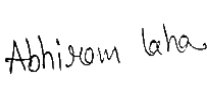 Abhirom laha